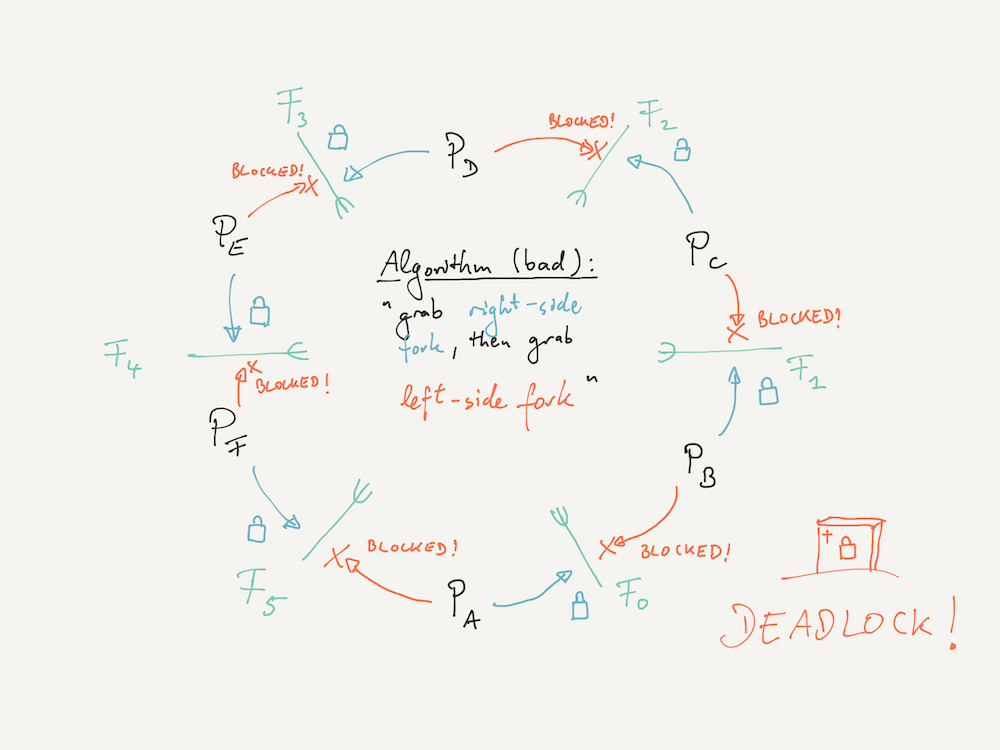 F3
F2
BLOCKED!
PD
BLOCKED!
PE
PC
Algorithm (bad):
"grab right-side
fork, then grab
left-side fork"
BLOCKED!
F4
F1
BLOCKED!
PF
PB
BLOCKED!
BLOCKED!
F5
PA
F0
DEADLOCK!